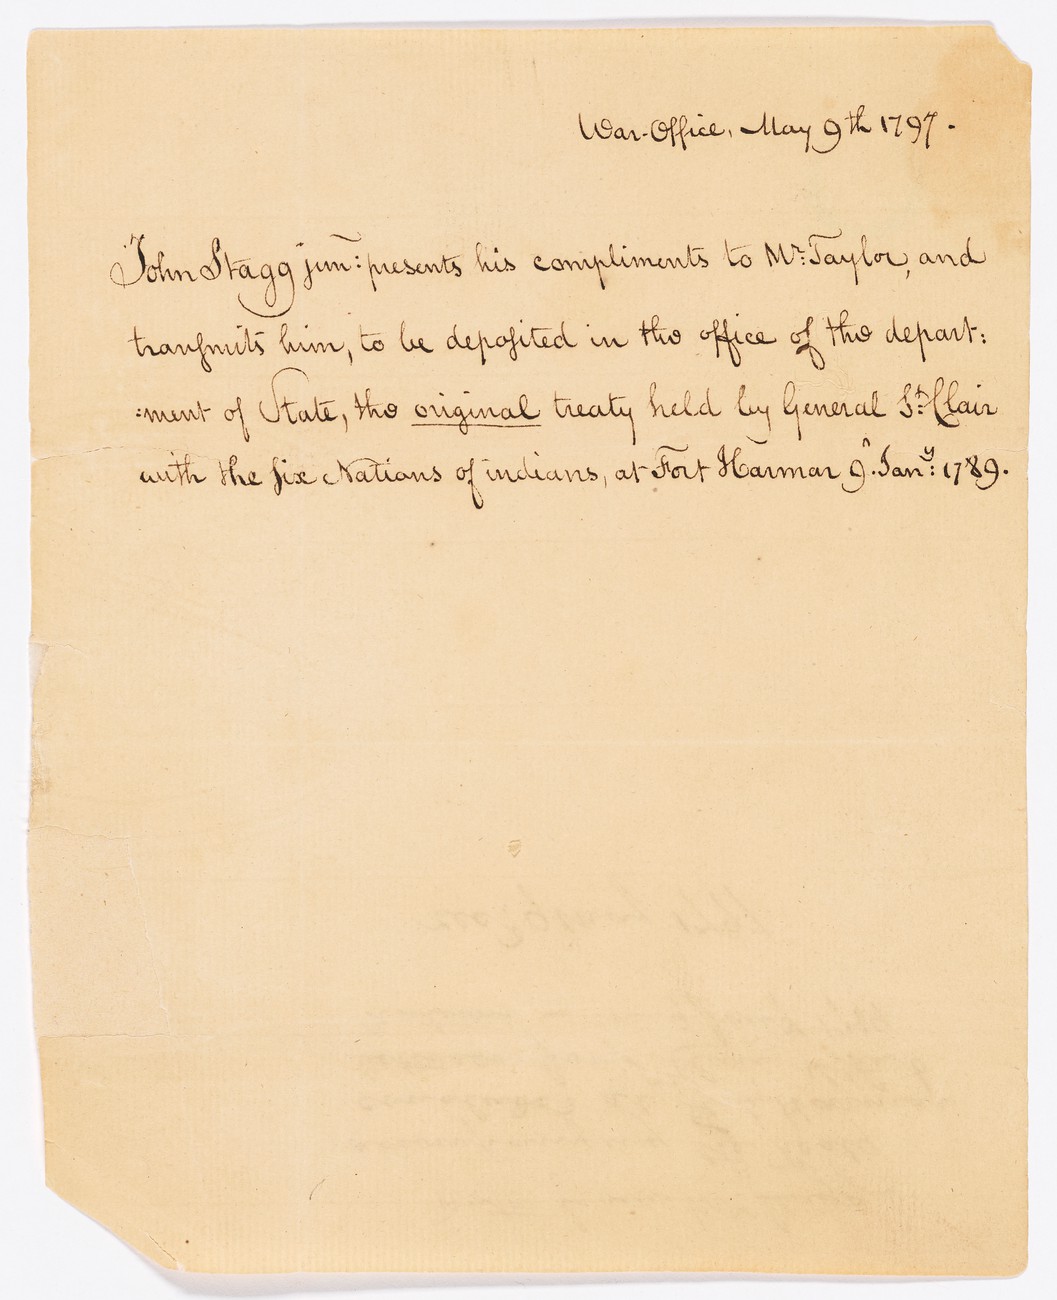 War-Office, May 9th 1797.
John Stagg junr: presents his compliments to Mr. Taylor, and
transmits him, to be deposited in the office of the depart:
:ment of State, the original treaty held by General St. Clair
with the six Nations of indians, at Fort Harmar 9. Jany: 1789.